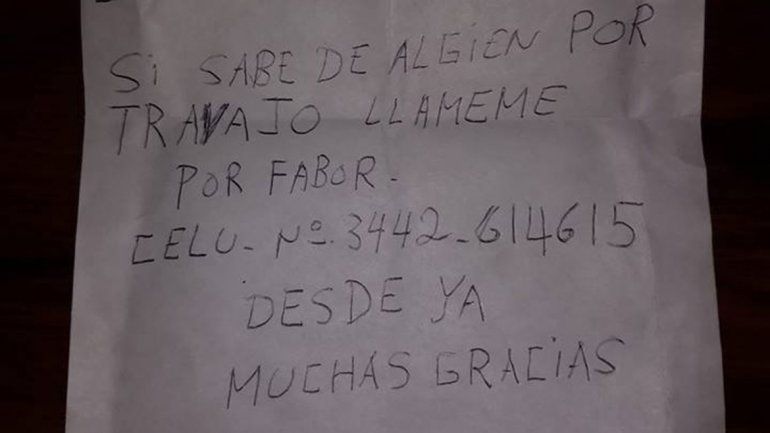 Si SABE DE ALGiEN POR
TRAVAJO LLAMEME
POR FABOR.
CELU- Nº. 3442-614615
DESDE YA
MUCHAS GRACiAS